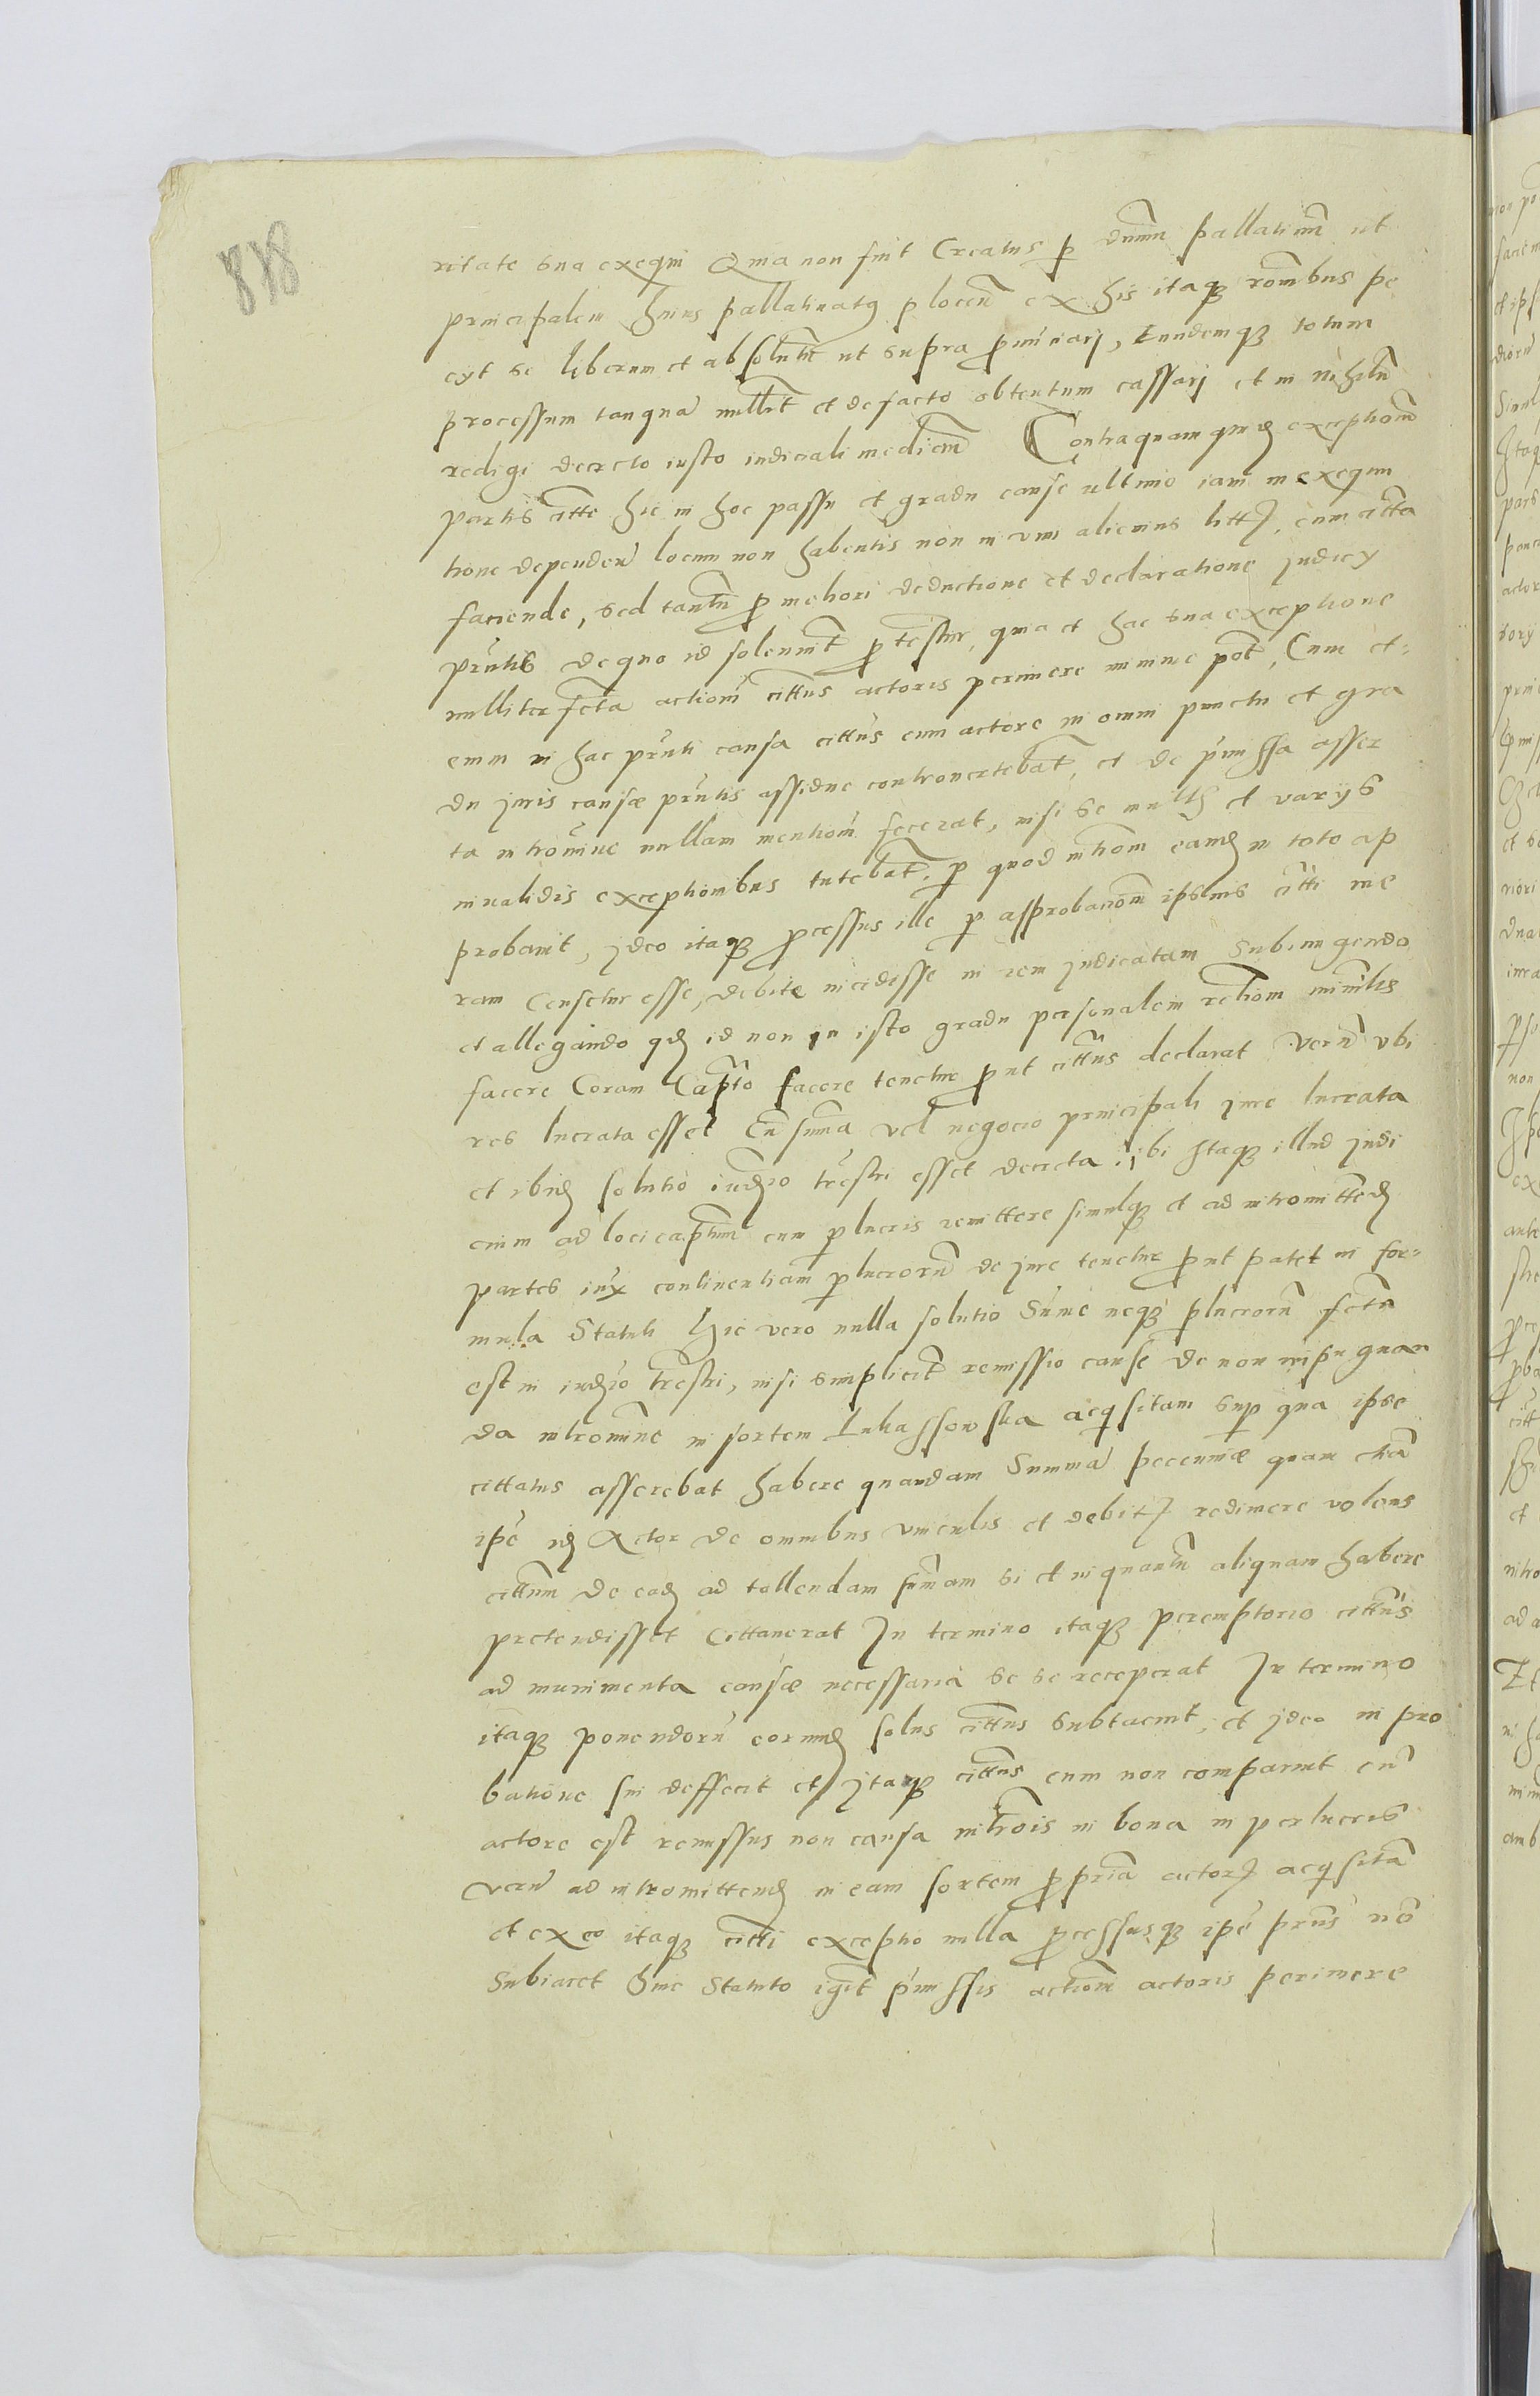 818
ritate sua exequi Quia non fuit Creatus p dnum pallatinum ut
principalem huius pallatinatus p locen ex his itaq ronibus pe
cyt se liberum et absolutu ut supra pnunciarj, Eundemq totum
processum tanqua nullit et defacto obtentum cassarj et in nihilu
redigi decreto iusto indicali mediem Contra quam quid exceptiom
partis citte hic in hoc passu et gradu cause ultimo iam in exequu
tione dependen locum non habentis non in vim alicuius litt, cum citta
faciende, sed tantu p meliori deductione et declaratione judicy
pntis de quo id solennit ptestur, quia et hac sua exceptione
nulliter fcta actiom cittus actoris perimere minime pot, Cum et-
enim in hac pnti causa cittus cum actore in omni punctu et gra
du juris causæ pntis assidue controvertebat, et de pmissa asser
ta intromine nullam mentiom fecerat, nisi se multis et varys
invalidis exceptionibus tutebat, p quod intiom eamd in toto ap
probavit, jdeo itaq pcessus ille p approbaciom ipsius citti me
ram censetur esse, debite incidisse in rem judicatam Subiungendo
et allegando qd id non in isto gradu personalem reliom minilis
facere Coram Capto facere tenetur put cittus declarat Veru vbi
res lucrata esset Cu suma vel negocio principali jure lucrata
et ibid solutio iudio trestri esset decreta ibi Itaq illud judi
cium ad loci captum cum p lucris remittere simulq et ad intromitted
partes iux continentiam p lucroru de jure tenetur put patet in for-
mula Statuti Hic vero nulla solutio Sume neq plucroru fcta
est in iudio trestri, nisi simplicit remissio cause de non impugnan
da intromine in sortem Lukassowska acqsitam sup qua ipse
cittatus asserebat habere quandam Summa pecuniæ quam eta
ipe id Actor de omnibus vinculis et debit redimere volens
cittum de ead ad tollendam sumam si et inquantu aliquam habere
pretendisset Cittaverat In termino itaq peremptorio cittus
ad munimenta causæ necessaria se se receperat In termino
itaq ponendoru eorund solus cittus subtacuit, et jdeo in pro
batione sui deffecit et jtaq cittus cum non comparuit cu
actore est remissus non causa introis in bona in perlucris
veru ad intromittend in eam sortem ppria actor acqsita
et ex eo itaq citti exceptio nulla pcessusq ipe prius no
Subiacet Sine Statuto igit pmissis actiom actoris perimere